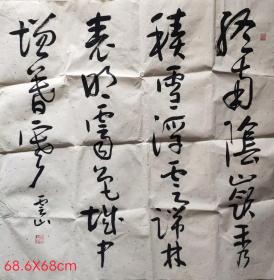 終南陰嶺秀
積雪浮雲端林
表明霽色城中
增暮寒
68.6X68cm